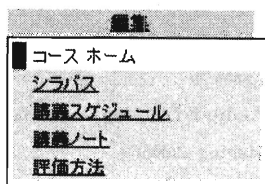 編集
コース ホーム
シラバス
講義スケジュール
講義ノート
評価方法